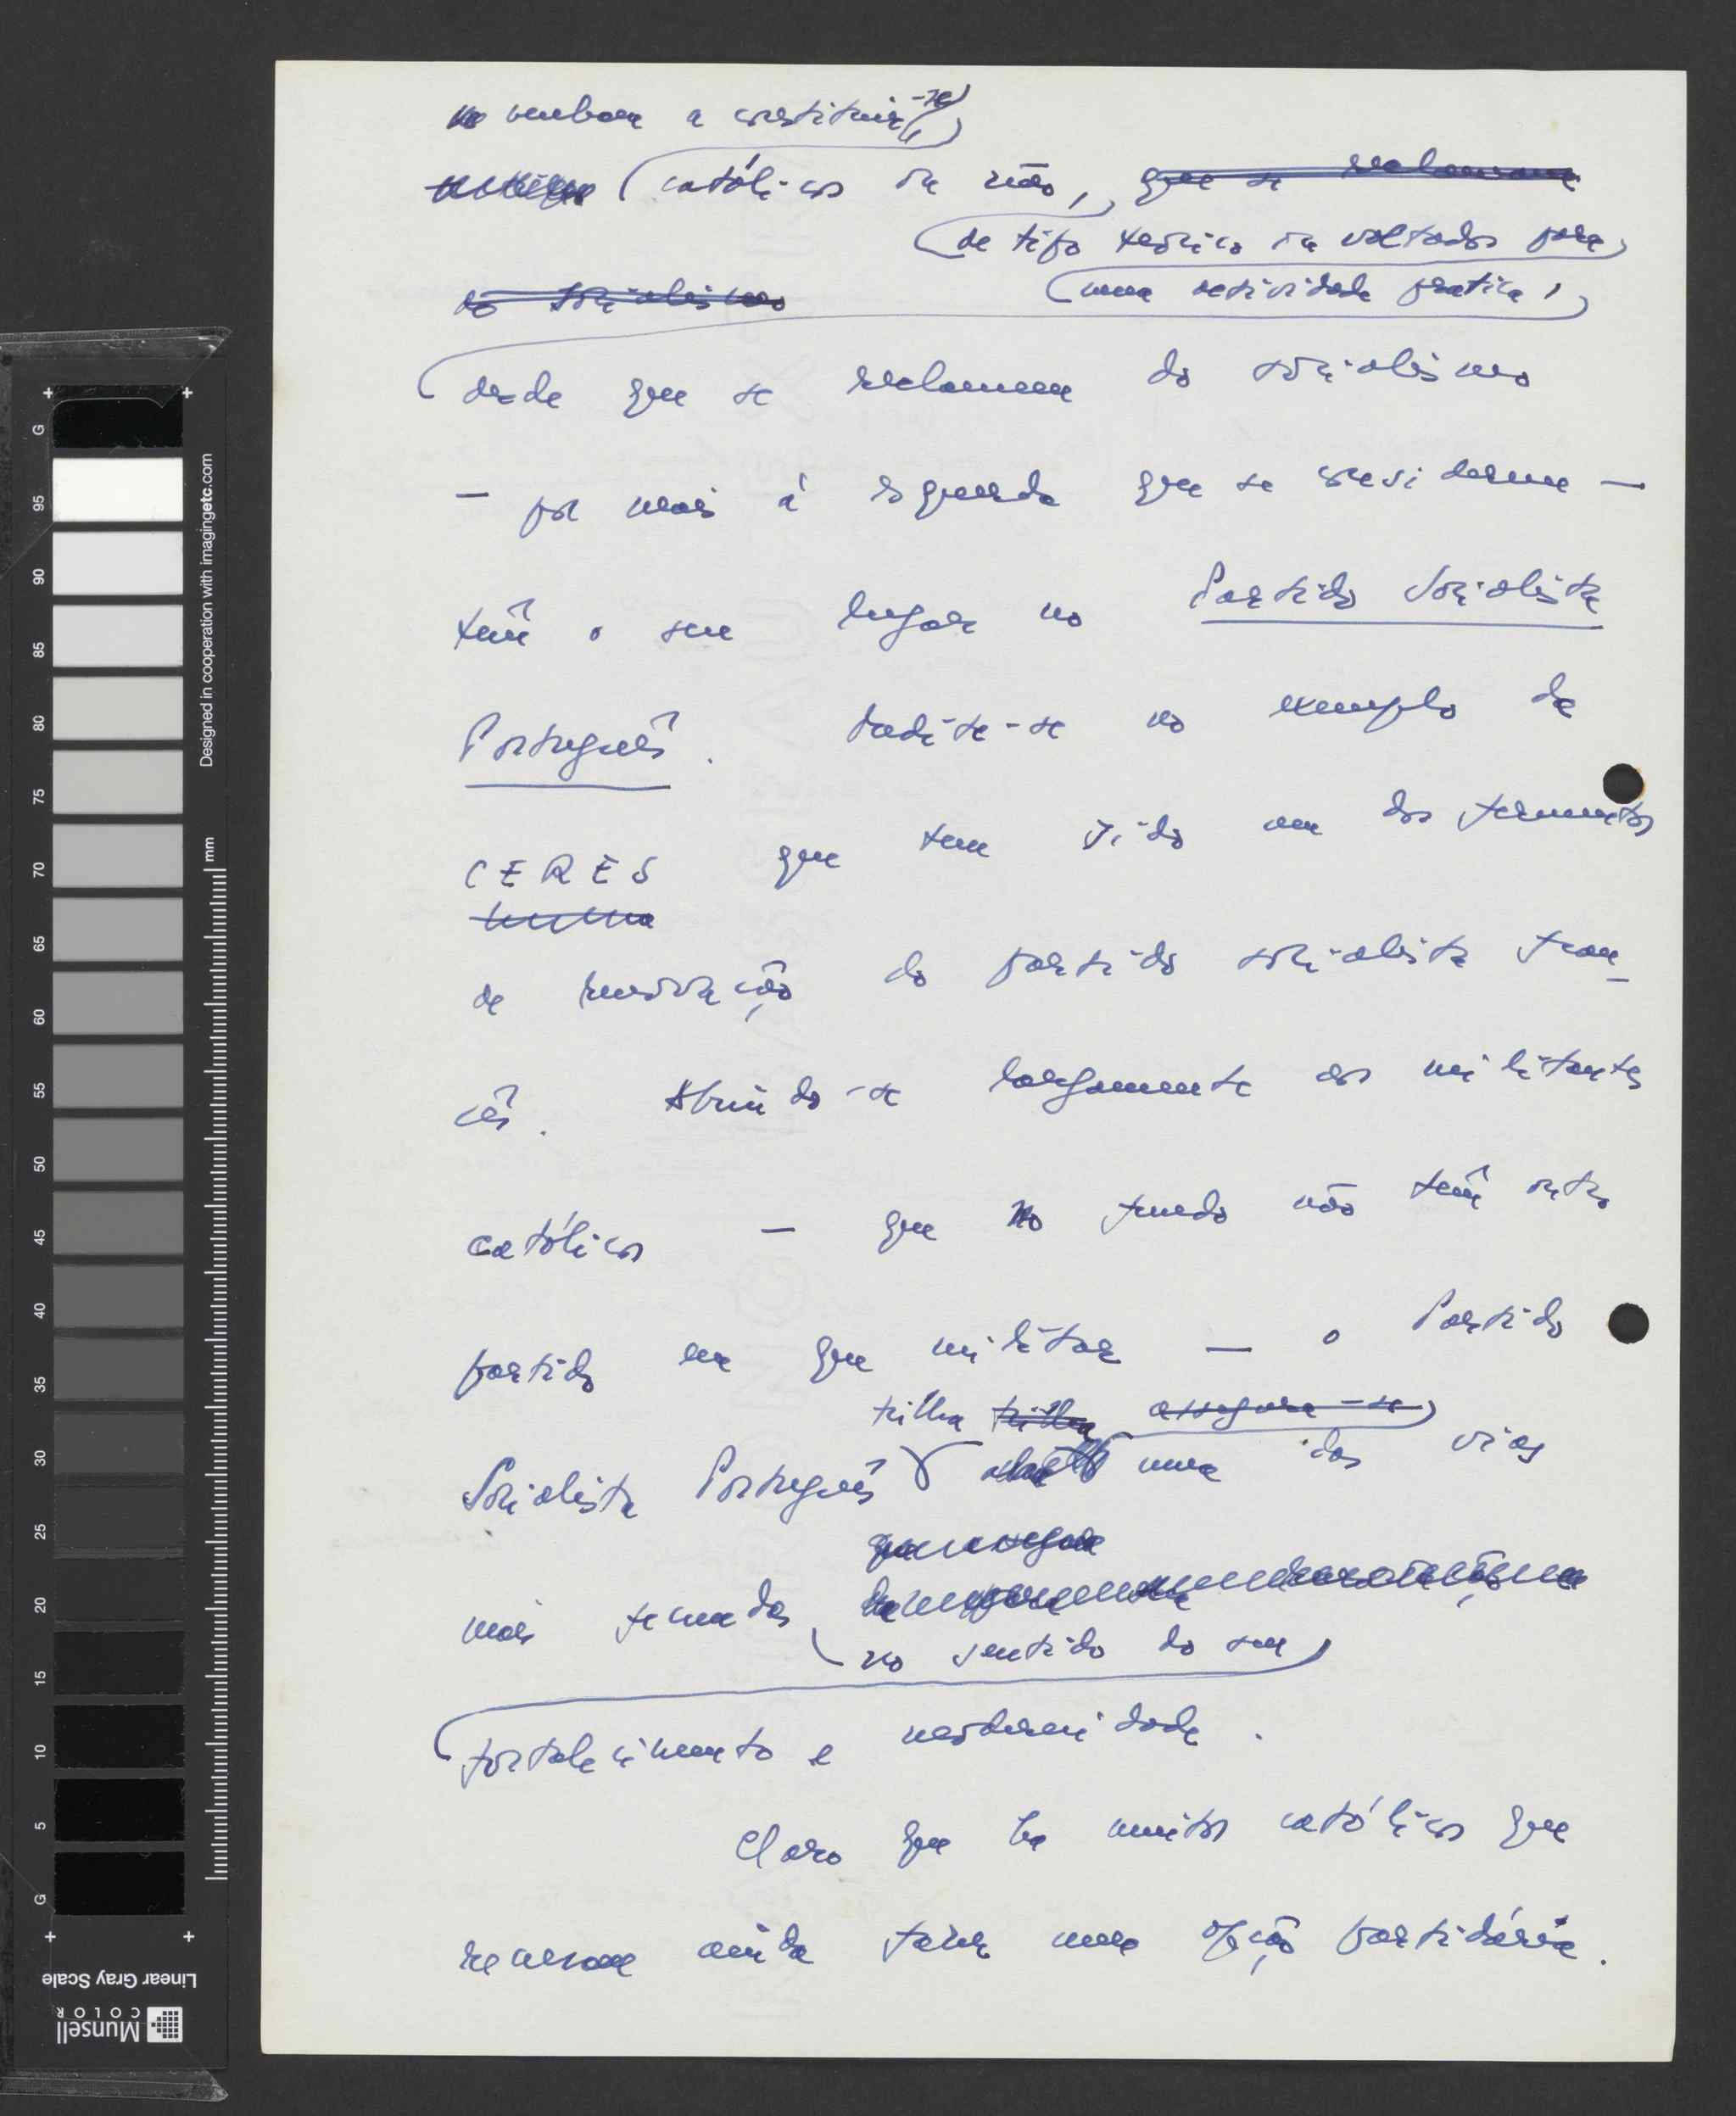 venham a constituir-se
católicos ou não, que se reclamam
de tipo teórico ou voltados para
uma actividade pratica,
do socialismo
desde que se reclamem do socialismo
— por mais à esquerda que se considerem —
têm o seu lugar no Partido Socialista
Português. Medite-se no exemplo do
CERES que tem sido um dos fermentos
de renovação do partido socialista fran-
cês. Abrindo-se largamente aos militantes
católicos — que no fundo não têm outro
partido em que militar — o Partido
trilha trilha assegura-se
Socialista Português uma das vias
que assegura
mais fecundas
no sentido do seu
fortalecimento e modernidade.
Claro que há muitos católicos que
recusam ainda fazer uma opção partidária.
G 95 90 85 80 75 70 65 60 55 50 45 40 35 30 25 20 15 10 5 G
Designed in cooperation with imagingetc.com
mm
Linear Gray Scale
Munsell
COLOR